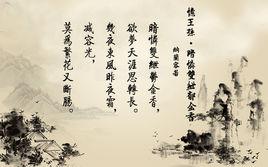 憶王孫·暗憐雙紲郁金香
納蘭容若
暗憐雙紲郁金香，
欲夢天涯思轉長。
幾夜東風昨夜霜，
減容光，
莫為繁花又斷腸。